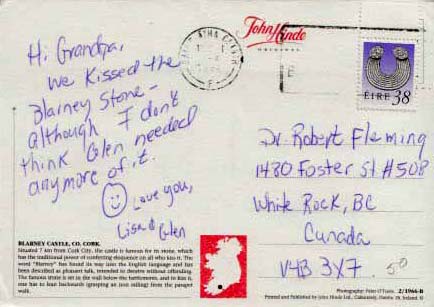 Hi Grandpa,
We Kissed the
Blainey Stone -
although I don't
think Glen needed
anymore of it.
Love you,
Lise & Glen
BLARNEY CASTLE, CO. CORK.
Situated 7 km from Cork City, the castle is famous for its stone, which
has the traditional power of conferring eloquence on all who kiss it. The
word "Blarney" has found its way into the English language and has
been described as pleasant talk, intended to deceive without offending.
The famous stone is set in the wall below the battlements, and to kiss it,
one has to lean backwards (grasping an iron railing) from the parapet
walk.
John Hinde
ORIGINAL
ÉIRE 38
Dr. Robert Fleming
1480 Foster St #508
White Rock, BC
Canada
V4B 3X7.
50
Photography: Peter O'Toole.
2/1966-B
Printed and Published by John Hinde Ltd., Cabinteely, Dublin 18, Ireland.